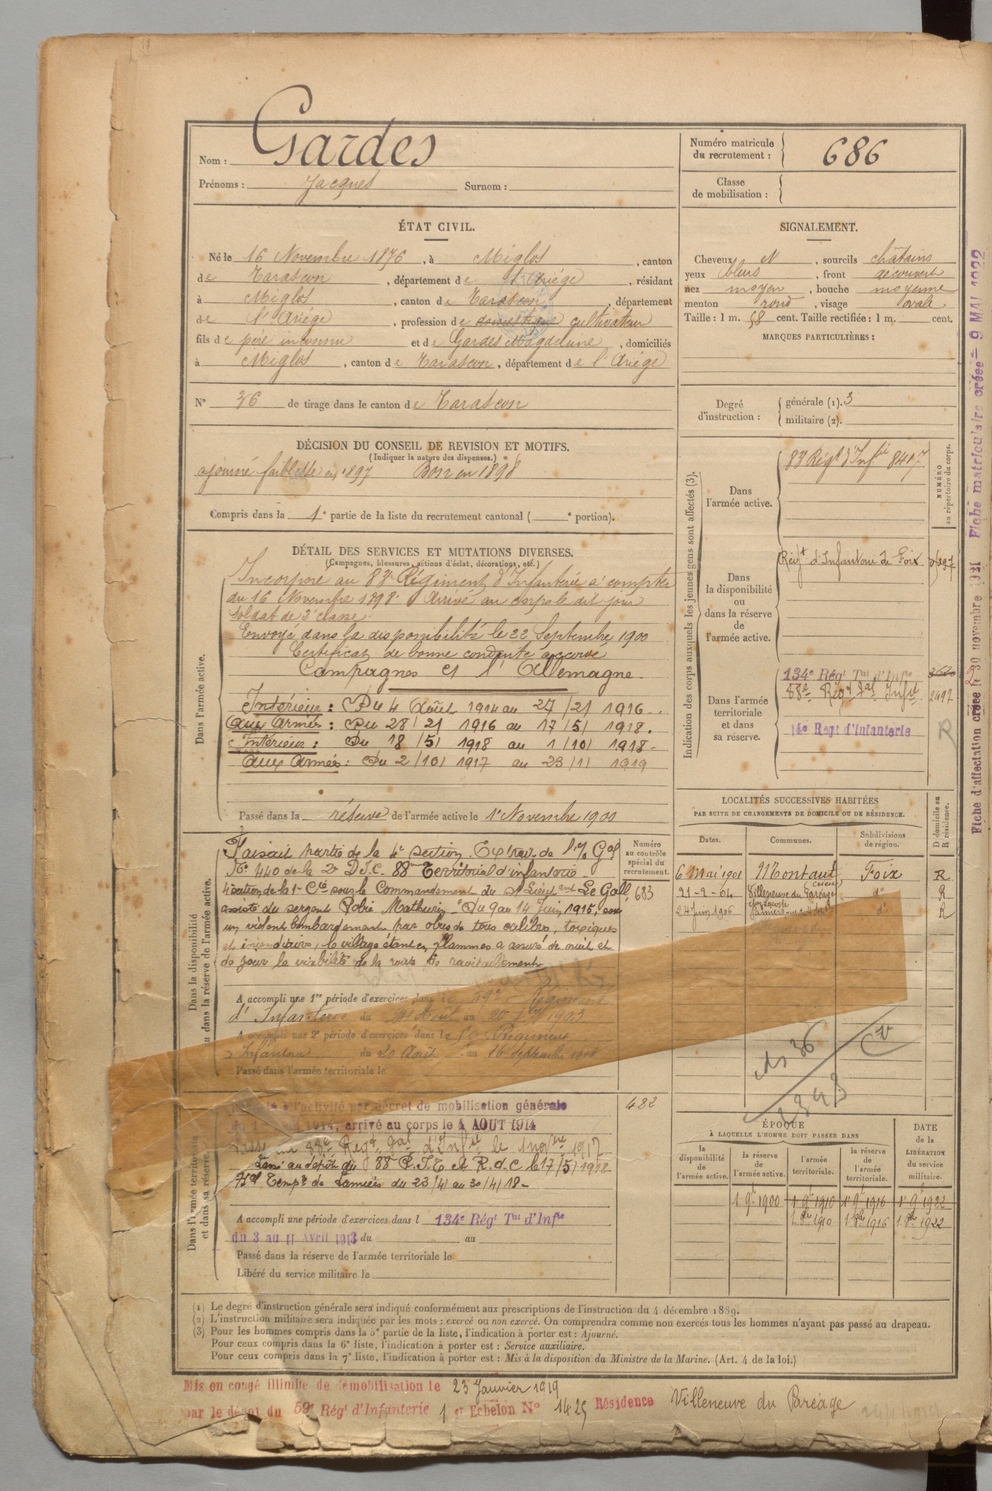 Nom : Gardes
Prénoms : Jacques Surnom :
Numéro matricule du recrutement : 686
Classe de mobilisation :
ÉTAT CIVIL.
Né le 16 Novembre 1876, à Miglos, canton
de Tarascon, département de l'Ariège, résidant
à Miglos, canton de Tarascon, département
de l'Ariège, profession de domestique cultivateur
fils de père inconnu et de Gardes Magdeleine, domiciliés
à Miglos, canton de Tarascon, département de l'Ariège
N° 36 de tirage dans le canton de Tarascon
SIGNALEMENT.
Cheveux N, sourcils châtains
yeux bleus, front découvert
nez moyen, bouche moyenne
menton rond, visage ovale.
Taille : 1 m. 58 cent. Taille rectifiée : 1 m. cent.
MARQUES PARTICULIÈRES :
Degré d'instruction : générale (1). 3
militaire (2).
DÉCISION DU CONSEIL DE REVISION ET MOTIFS.
(Indiquer la nature des dispenses.)
ajourné faiblesse en 1897 Bon en 1898
Compris dans la 1e partie de la liste du recrutement cantonal ( e portion).
DÉTAIL DES SERVICES ET MUTATIONS DIVERSES.
(Campagnes, blessures, actions d'éclat, décorations, etc.)
Dans l'armée active.
Incorporé au 83e Régiment d'Infanterie à compter
du 16 Novembre 1898. Arrivé au corps le dit jour
soldat de 2e classe.
Envoyé dans la disponibilité le 22 Septembre 1900
Certificat de bonne conduite accordé
Campagnes Ct l'Allemagne.
Intérieur : Du 4 Août 1914 au 27/21 1916.
Aux Armées : Du 28/21 1916 au 17/5/ 1918.
Intérieur : Du 18/5/ 1918 au 1/10/ 1918.
Aux Armées : Du 2/10/ 1917 au 23/1/ 1919
Passé dans la réserve de l'armée active le 1er Novembre 1900
Indication des corps auxquels les jeunes gens sont affectés (3).
NUMÉRO au répertoire du corps.
Dans l'armée active.
83e Régt d'Infie 8417
Dans la disponibilité ou dans la réserve de l'armée active.
Régt d'Infanterie de Foix
Dans l'armée territoriale et dans sa réserve.
134e Régt Tal d'Infie
88e Régt Tal Infie
14e Régt d'Infanterie
R
LOCALITÉS SUCCESSIVES HABITÉES
PAR SUITE DE CHANGEMENTS DE DOMICILE OU DE RÉSIDENCE.
Dates. Communes. Subdivisions de région. D domicile ou R résidence.
6 Mai 1901 Montaut Foix R
21-2-04 Villeneuve du Paréage do R
24 Juin 1906 do R
Dans la disponibilité ou dans la réserve de l'armée active.
Numéro au contrôle spécial du recrutement.
633
Faisait partie de la 4e section. Extrait de l'o/ Gal
No 440 de la 2e D.I.C. 88e Territorial d'infanterie
4 section de la 1e Cie sous le Commandement du St Lieutnt Le Gall,
assisté du sergent Robic Mathurin. Du 9 au 14 Juin 1915, sous
un violent bombardement par obus de tous calibres, toxiques
et incendiaires, le village étant en flammes a assuré de nuit et
de jour la viabilité de la voie de ravitaillement.
A accompli une 1re période d'exercices dans le 59e Régiment
d'Infanterie du au 1903
A accompli une 2e période d'exercices dans le Régiment
d'Infanterie du 20 Août au 16 Septembre 1906
Passé dans l'armée territoriale le
Dans l'armée territoriale et dans sa réserve.
682
à l'activité par décret de mobilisation générale
du 1 1914, arrivé au corps le 4 AOUT 1914
Passé au 88e Régt Tal d'Infie le 1917
au dépôt du 88 R.I.T. et le 17/5/1918
du 23/4/ au 30/4/18-
A accompli une période d'exercices dans l 134e Régt Tal d'Infie
du 3 au 11 Avril 1913 du au
Passé dans la réserve de l'armée territoriale le
Libéré du service militaire le
ÉPOQUE
À LAQUELLE L'HOMME DOIT PASSER DANS
la disponibilité de l'armée active. la réserve de l'armée active. l'armée territoriale. la réserve de l'armée territoriale. DATE de la LIBÉRATION du service militaire.
1 9e 1900 1 9e 1910 1 9e 1916 1 9e 1922
1 1910 1 1916 1 1922
(1) Le degré d'instruction générale sera indiqué conformément aux prescriptions de l'instruction du 4 décembre 1889.
(2) L'instruction militaire sera indiquée par les mots : exercé ou non exercé. On comprendra comme non exercés tous les hommes n'ayant pas passé au drapeau.
(3) Pour les hommes compris dans la 5e partie de la liste, l'indication à porter est : Ajourné.
Pour ceux compris dans la 6e liste, l'indication à porter est : Service auxiliaire.
Pour ceux compris dans la 7e liste, l'indication à porter est : Mis à la disposition du Ministre de la Marine. (Art. 4 de la loi.)
Mis en congé illimité de démobilisation le 23 Janvier 1919
par le dépôt du 59e Régt d'Infanterie 1 er Echelon N° 1425 Résidence Villeneuve du Paréage
Fiche d'affectation créée le 30 novembre 1921 Fiche matriculaire créée 9 MAI 1922